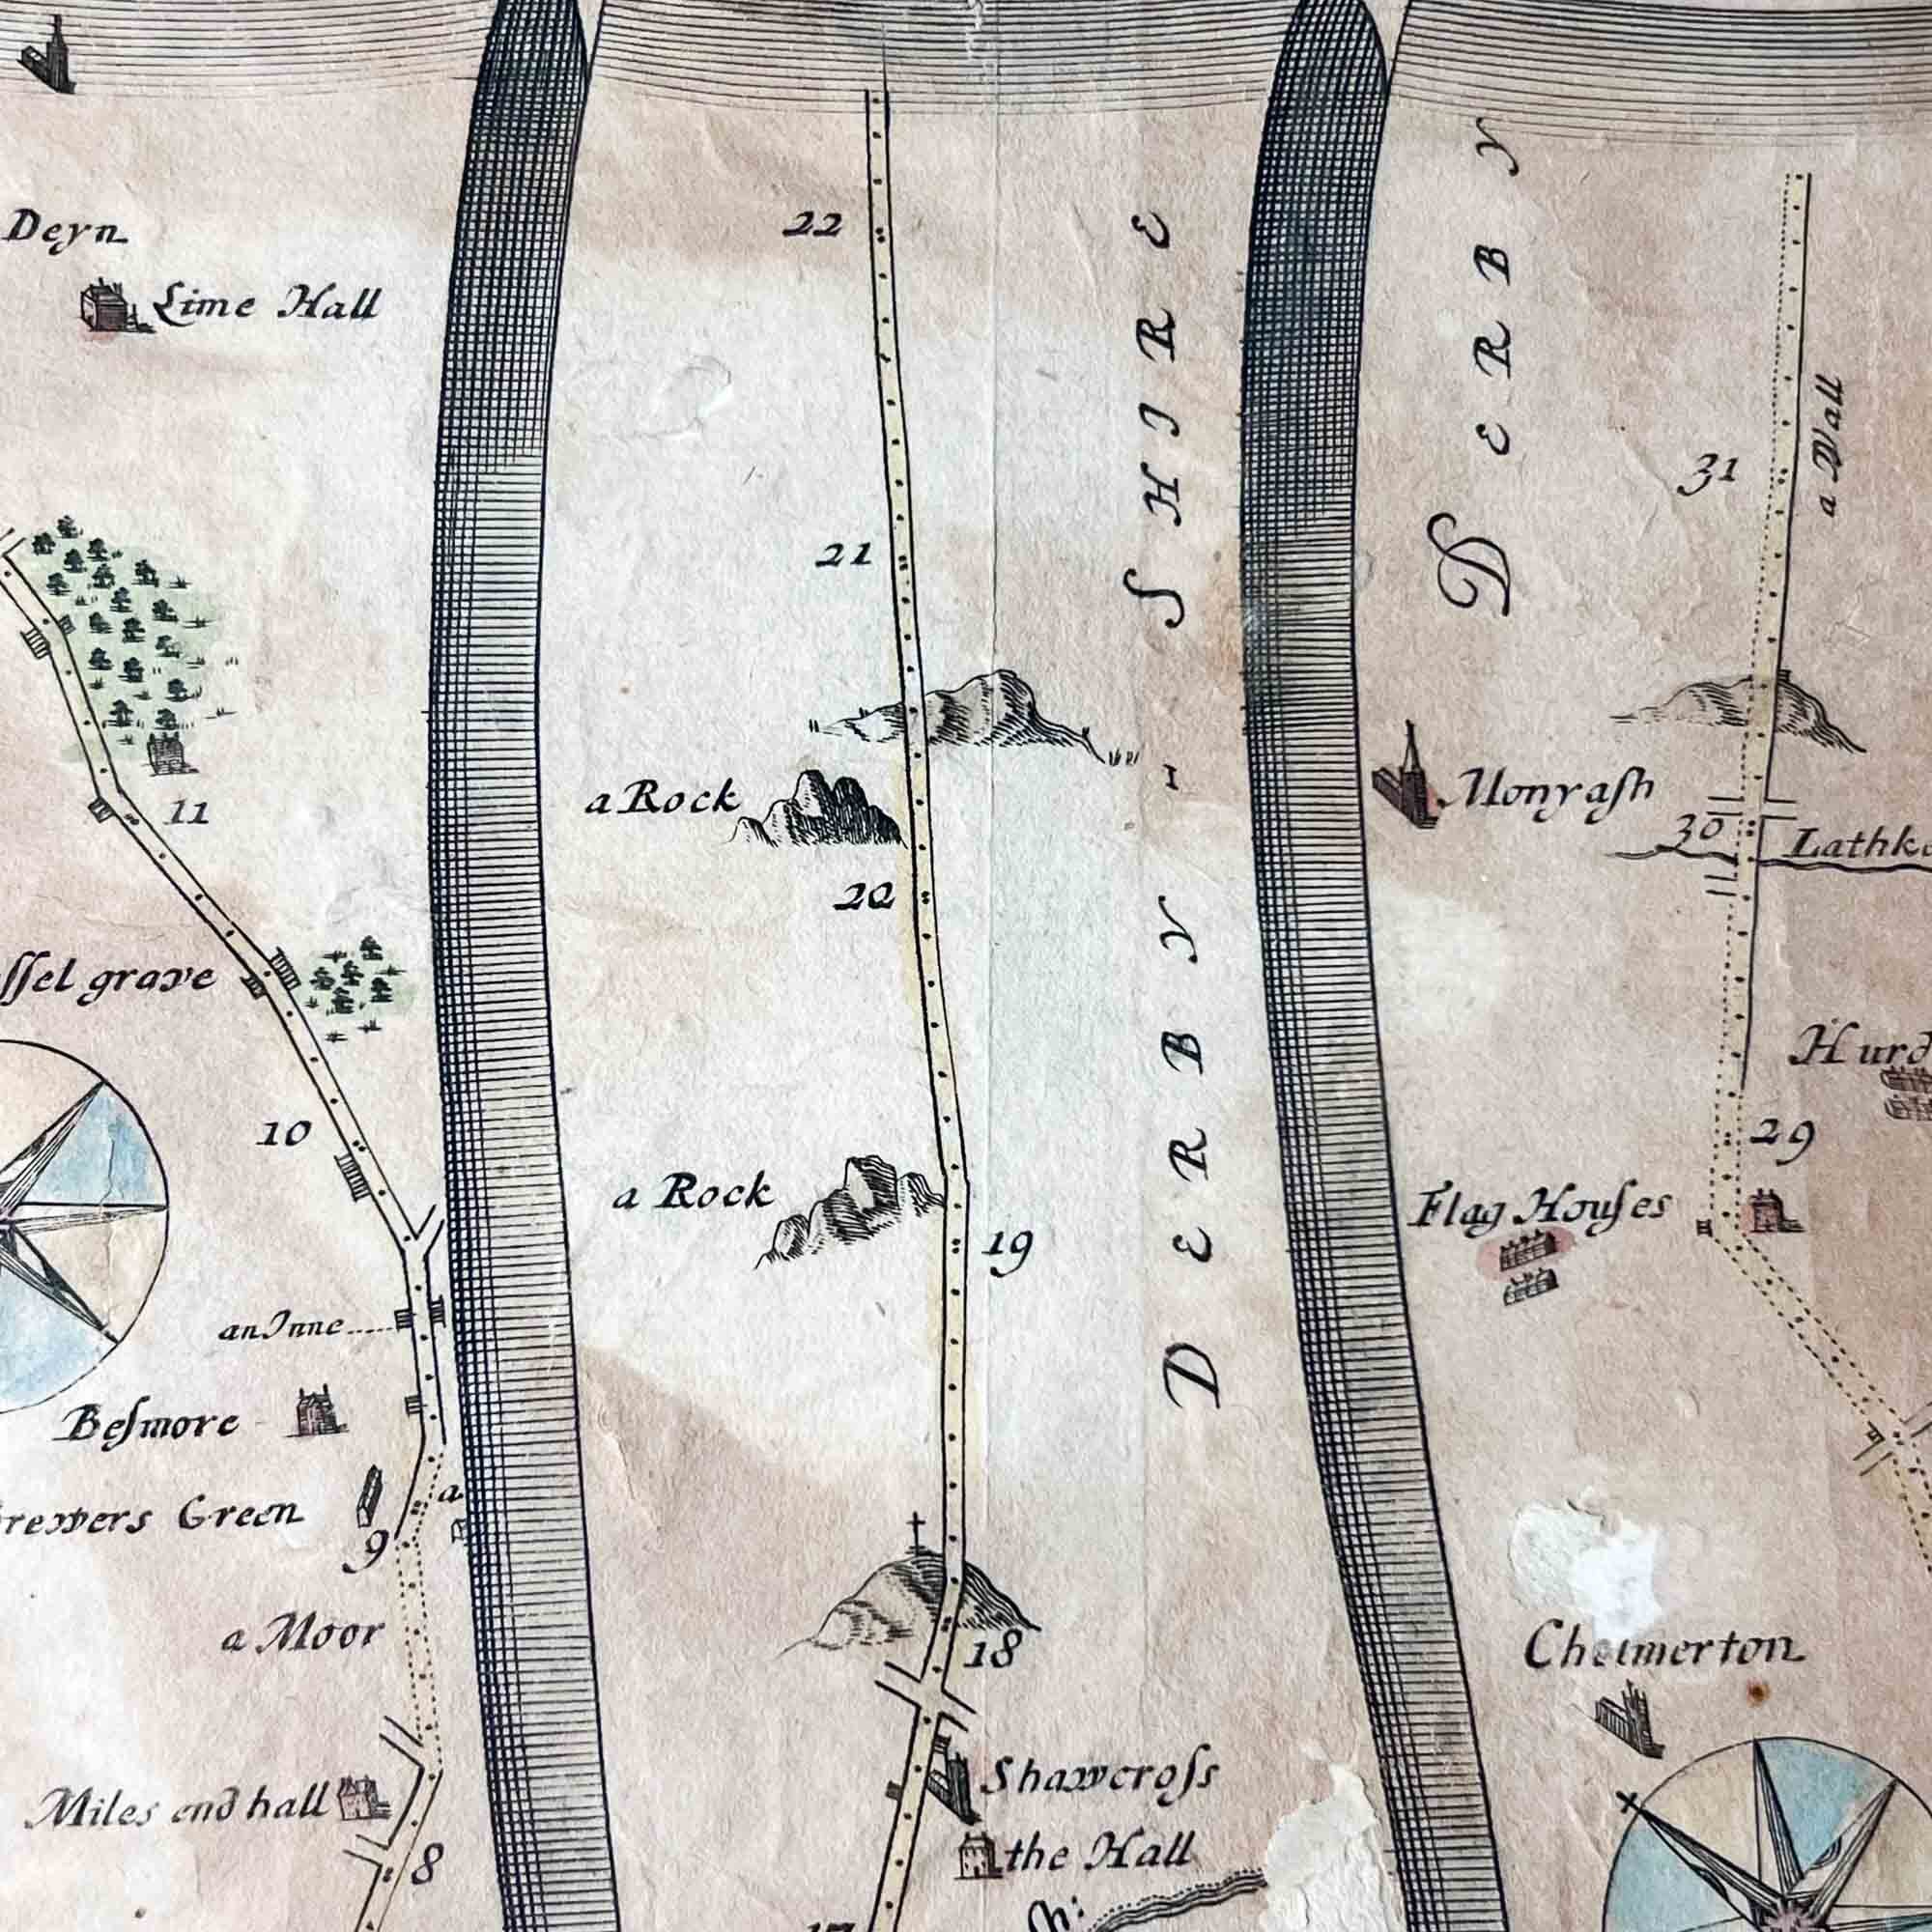 Deyn
Lime Hall
11
ſſel grave
10
an Inne
Beſmore
Green
a
9
a Moor
Miles end hall
8
22
21
a Rock
20
a Rock
19
18
Shawcroſs
the Hall
17
DERBY-SHIRE
DERBY
31
a Wall
Monyaſh
30
Lathk
Hurd
29
Flag Houſes
Chelmerton